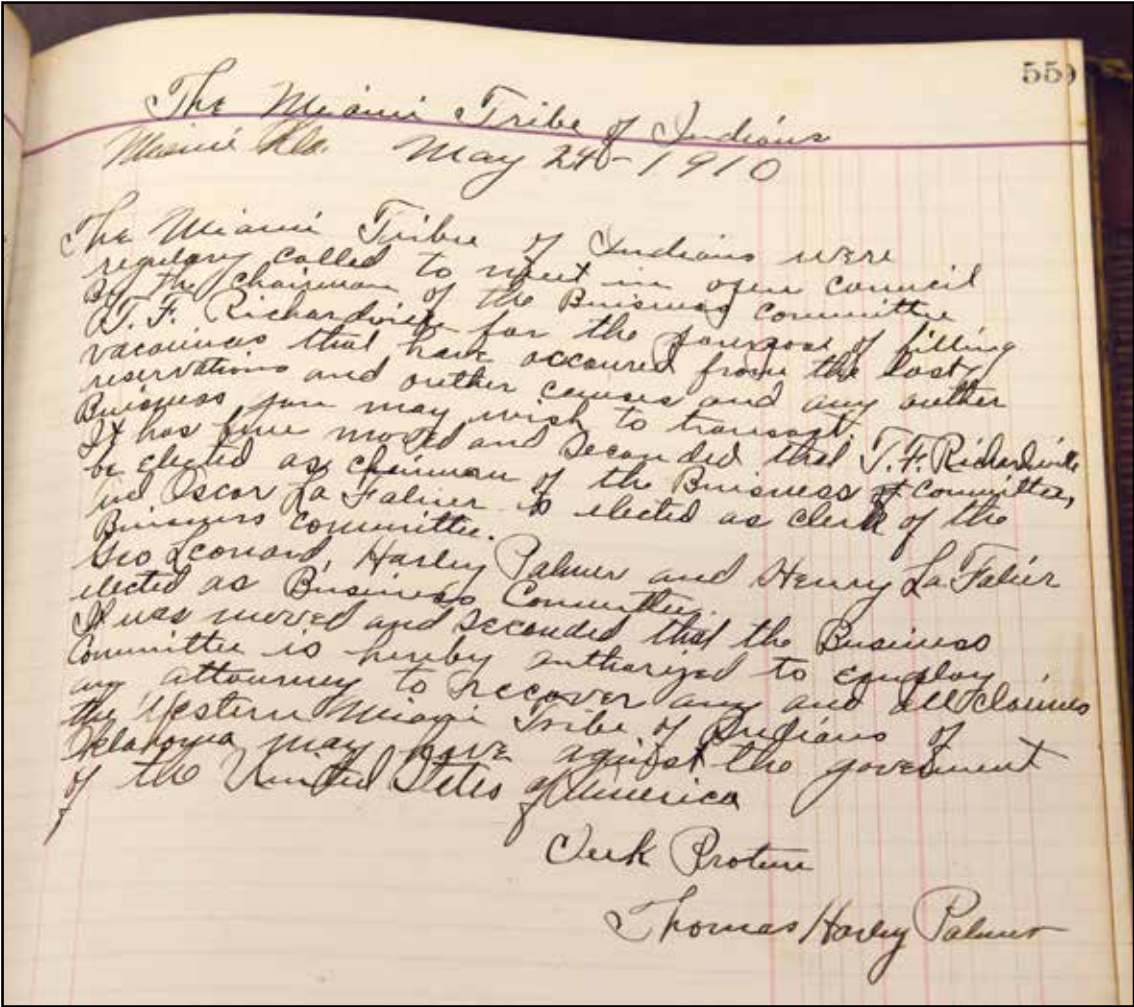 55
The Miami Tribe of Indians
Miami Okla. May 24-1910
The Miami Tribe of Indians were
regulary called to meet in open council
By the chairman of the Buisness committee
T. F. Richardville for the purpose of filling
vacancies that have occoured from the last
reservations and outher causes and any outher
Buisness you may wish to transact.
It has been moved and seconded that T.F. Richardville
be elected as chairman of the Buisness of committee,
and Oscar La Falier is elected as clerk of the
Buisness committee.
Geo Leonard, Harley Palmer and Henry La Falier
elected as Business Committee.
It was moved and seconded that the Business
Committee is hereby authorized to employ
any attourney to recover any and all claimes
the Western Miami Tribe of Indians of
Oklahoma may have against the government
of the United States of America
Clerk Protem
Thomas Harley Palmer